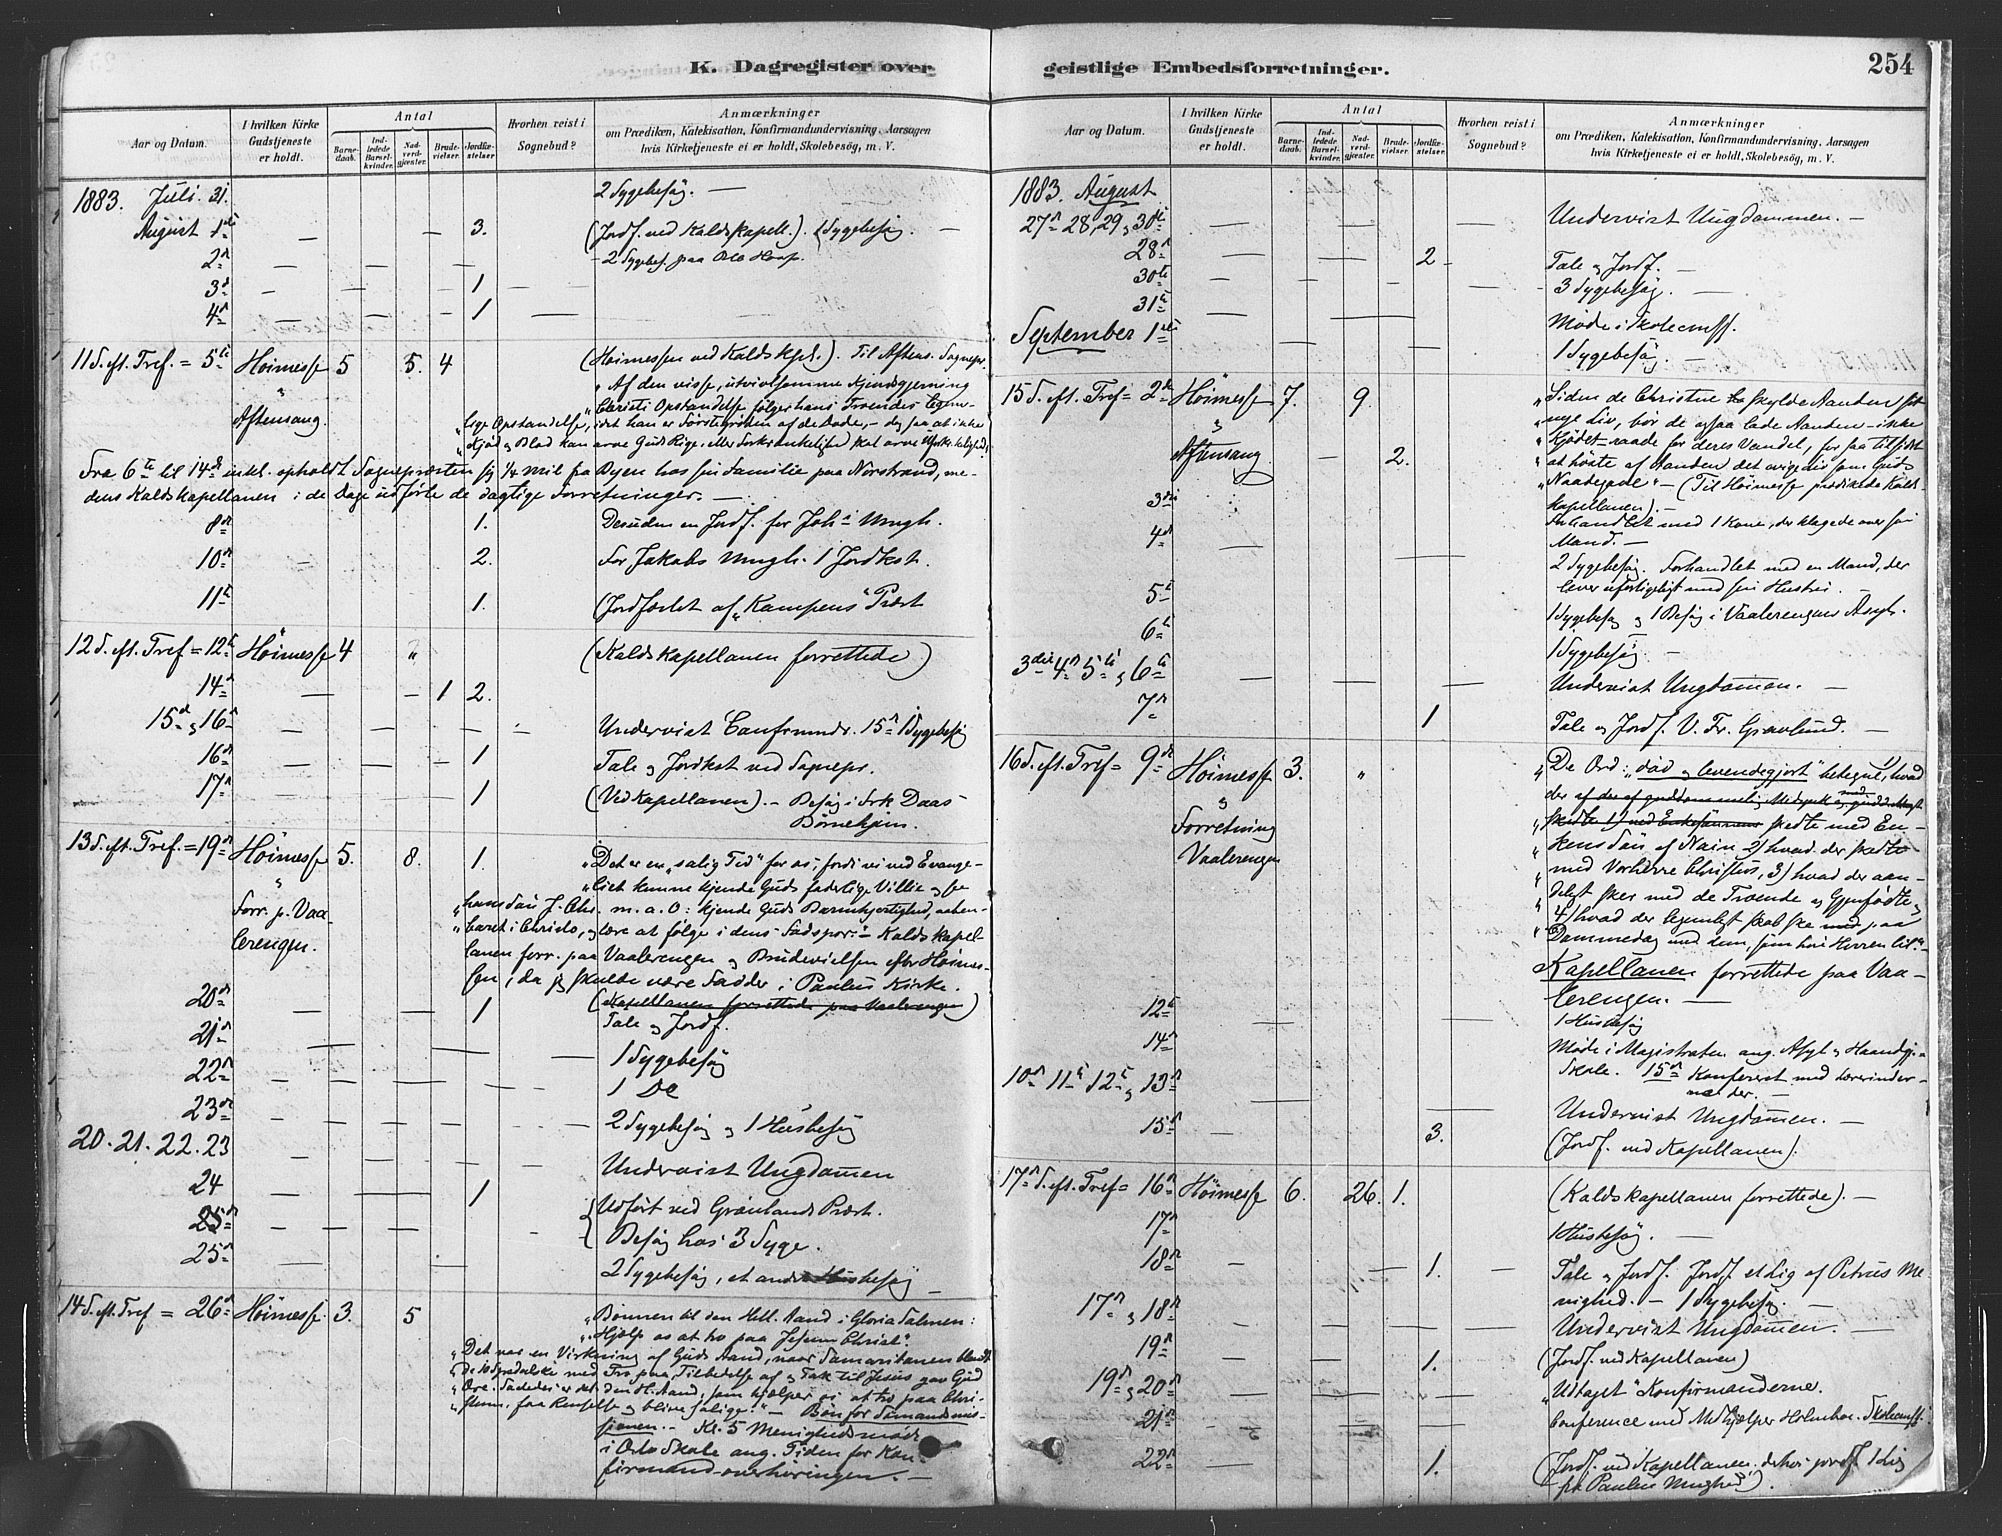 K. Dagregister over
geistlige Embedsforretninger.
254
Aar og Datum.
I hvilken Kirke Gudstjeneste er holdt.
Antal
Barnedaab.
Indledede Barselkvinder.
Nadverdgjester.
Brudevielser.
Jordfæstelser
Hvorhen reist i Sognebud?
Anmærkninger
om Prædiken, Katekisation, Konfirmandundervisning, Aarsagen
hvis Kirketjeneste ei er holdt, Skolebesög, m. V.
1883. Juli. 31. 2 Sygebesög. —
August 1ste — 3. (Jordf. ved Kaldskapell.). Sygebesög. —
2n — 2 Sygebes. paa Oslo Hosp.
3d — 1
4n — 1
11 S. eft. Tref. = 5te Höimesse 5 5. 4 (Höimessen ved Kaldskpl.). Til Aftens. Sognepr.
" Aftensang. "Af den visse, utvivlsomme Kjendsgjerning
"Christi Opstandelse følger hans Troendes legem-
"lige Opstandelse, idet han er Førstegrøden af de Døde, — dog saa at ikke
"Kjød og Blod kan arve Guds Rige, eller Forkrænkelighed skal arve Uforkrænkelighed"
Fra 6te til 14de inkl. opholdt Sognepræsten sig 1/4 Mil fra Byen hos sin Familie paa Norstrand, me-
dens Kaldskapellanen i de Dage udførte de daglige Forretninger. —
8de 1. Desuden en Jordf. for Joh.s Mngh.
10n — 2. For Jakobs Mngh. 1 Jordkst.
11te 1. (Jordfæstet af "Kampens" Præst
12 S. eft. Tref = 12te Höimesse 4 " (Kaldskapellanen forrettede)
14n — 1 2.
15d og 16n — Undervist Confirmndr. 15n 1 Sygebesög
16n — 1 Tale og Jordkst ved Sognepr.
17n — 1 (Ved Kapellanen). — Besög i Frk Daas
Börnehjem.
13 S. eft. Tref. = 19n Höimesse 5. 8. 1. "Det er en "salig Tid" for os, fordi vi ved Evange-
" Forr. p. Vaa- "liet kunne kjende Guds faderlige Villie og se
lerengen. "hans Søn J. Chr. m. a. O: kjende Guds Barmhjertighed, aaben-
"baret i Christo, og lære at følge i dens Fodspor." — Kaldskapel-
lanen forr. paa Vaalerengen og Brudevielsen efter Höimes-
sen, da jeg skulde være Fadder i Paulus Kirke.
20n — 1 (Kapellanen forrettede paa Vaalerengen)
Tale og Jordf.
21n — 1 Sygebesög
22n — 1 Do
23de — 2 Sygebesög og 1 Husbesög
20. 21. 22. 23 — Undervist Ungdommen
24 — 1 Udført ved Grønlands Præst.
25n — Besög hos 3 Syge.
25n — 2 Sygebesög, et andet Husbesög
14 S. eft. Tref = 26n Höimesse. 3. 5 "Bønnen til den Hell. Aand i Gloria Salmen:
"Hjælp os at tro paa Jesum Christ."
"Det var en Virkning af Guds Aand, naar Samaritanen blandt
"de 10 Spedalske med Tro paa, Tilbedelse af og Tak til Jesus gav Gud
"Ære. Saaledes er det den H. Aand, som hjælper os at tro paa Chri-
"stum, faa Renselse og blive salige." — Bøn for Sømandsmis-
sionen. — Kl. 5 Menighedsmøde
i Oslo Skole ang. Tiden for Kon-
firmand-overhøringen. —
Aar og Datum.
I hvilken Kirke Gudstjeneste er holdt.
Antal
Barnedaab.
Indledede Barselkvinder.
Nadverdgjester.
Brudevielser.
Jordfæstelser.
Hvorhen reist i Sognebud?
Anmærkninger
om Prædiken, Katekisation, Konfirmandundervisning, Aarsagen
hvis Kirketjeneste ei er holdt, Skolebesög, m. V.
1883. August
27n 28, 29, 30te — Undervist Ungdommen. —
28n — 2 Tale og Jordf. —
30te — 3 Sygebesög. —
31te — Møde i Skolecomss.
September 1ste — 1 Sygebesög. —
15 S. eft. Tref = 2de Höimesse 7. 9. "Siden de Christne skylde Aanden sit
" Aftensang — 2. "nye Liv, bør de ogsaa lade Aanden — ikke
"Kjødet — raade for deres Vandel, for saa tilsidst
"at høste af Aanden det evige Liv som Guds
"Naadegave" — (Til Höimesse prædikede Kalds-
kapellanen). —
3die Forhandlet med 1 Kone, der klagede over sin
Mand. —
4de — 2 Sygebesög. Forhandlet med en Mand, der
lever uforligeligt med sin Hustru. —
5te 1 Sygebesög og 1 Besög i Vaalerengens Asyl.
6te 1 Sygebesög. —
3die 4n 5te og 6te — Undervist Ungdommen. —
7n — 1 Tale og Jordf. V. Fr. Gravlund. —
16 S. eft. Tref = 9de Höimesse 3. " "De Ord: "død og levendegjort" betegne, 1) hvad
" Forretning "der af der af guddommelig Medynk og med gudd. Magt
Vaalerengen "skedte 1) ved Enkesønnens skedte med En-
"kens Søn af Nain 2) hvad der skedte
"med Vorherre Christus, 3) hvad der aan-
"deligt sker med de Troende og Gjenfødte og
"4) hvad der legemligt skal ske med paa
"Dommedag med dem, som høre Herren til."
Kapellanen forrettede paa Vaa-
lerengen. —
12te — 1 Husbesög
14n — Møde i Magistraten ang. Asyl og Haandgj.-
Skole. 15n Konfereret med Lærerinder-
ne der. —
10n 11te 12te og 13n — Undervist Ungdommen. —
15n — 3. (Jordf. ved Kapellanen).
17n S. eft. Tref = 16n Höimesse 6. 26. 1. (Kaldskapellanen forrettede). —
17n 1 Husbesög. —
18n — 1. Tale og Jordf. Jordf. et Lig af Petrus Me-
nighed. — 1 Sygebesög. —
17n og 18n — Undervist Ungdommen. —
19n — 1. (Jordf. ved Kapellanen)
19n og 20n — "Udtaget" Konfirmanderne.
21n — Conference med Medhjælper Holmboe. Skolecomss.
22n — 1. (Jordf. ved Kapellanen. 1 Lig
fra Paulus Menighed).